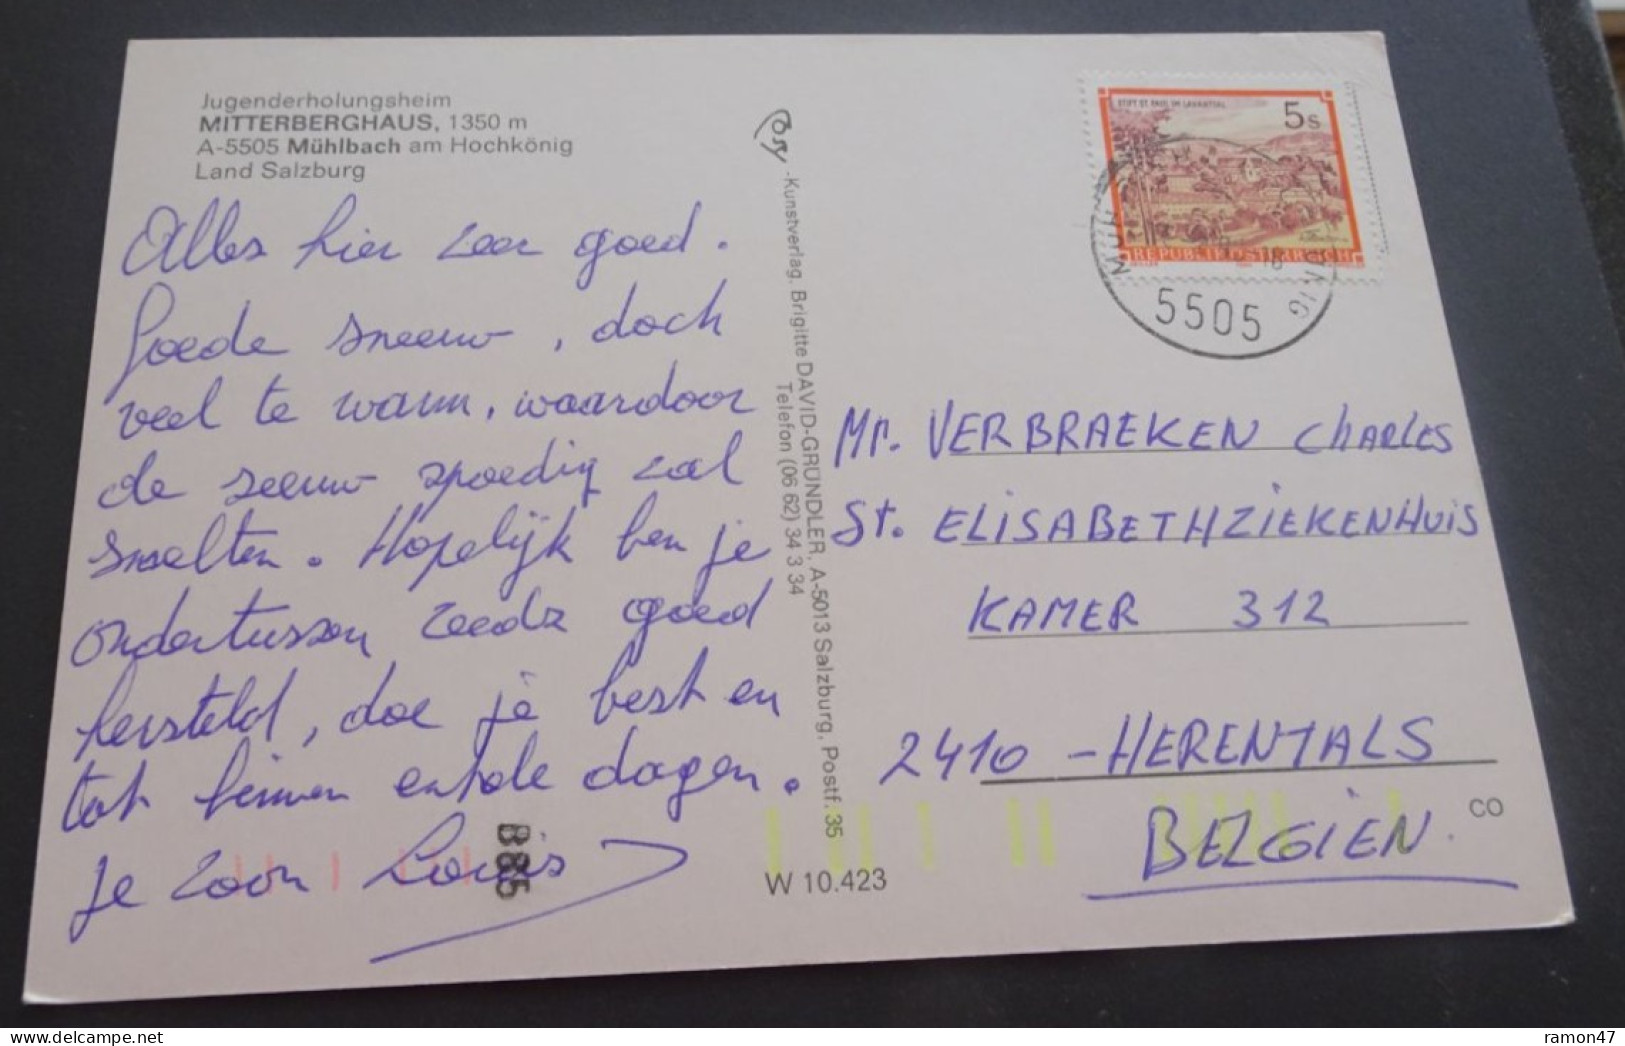 Jugenderholungsheim
MITTERBERGHAUS, 1350 m
A-5505 Mühlbach am Hochkönig
Land Salzburg
Alles hier zeer goed.
Goede sneeuw, doch
veel te warm, waardoor
de seeuw spoedig zal
smelten. Hopelijk ben je
ondertussen reeds goed
hersteld, doe je best en
tot binnen enkele dagen.
je zoon Louis
B885
-Kunstverlag, Brigitte DAVID-GRÜNDLER, A-5013 Salzburg, Postf. 35
Telefon (06 62) 34 3 34
W 10.423
STIFT ST. PAUL IM LAVANTTAL
5s
REPUBLIK ÖSTERREICH
5505
Mr. VERBRAEKEN CHARLES
St. ELISABETHZIEKENHUIS
KAMER 312
2410 - HERENTALS
BELGIEN.
CO
ramon47